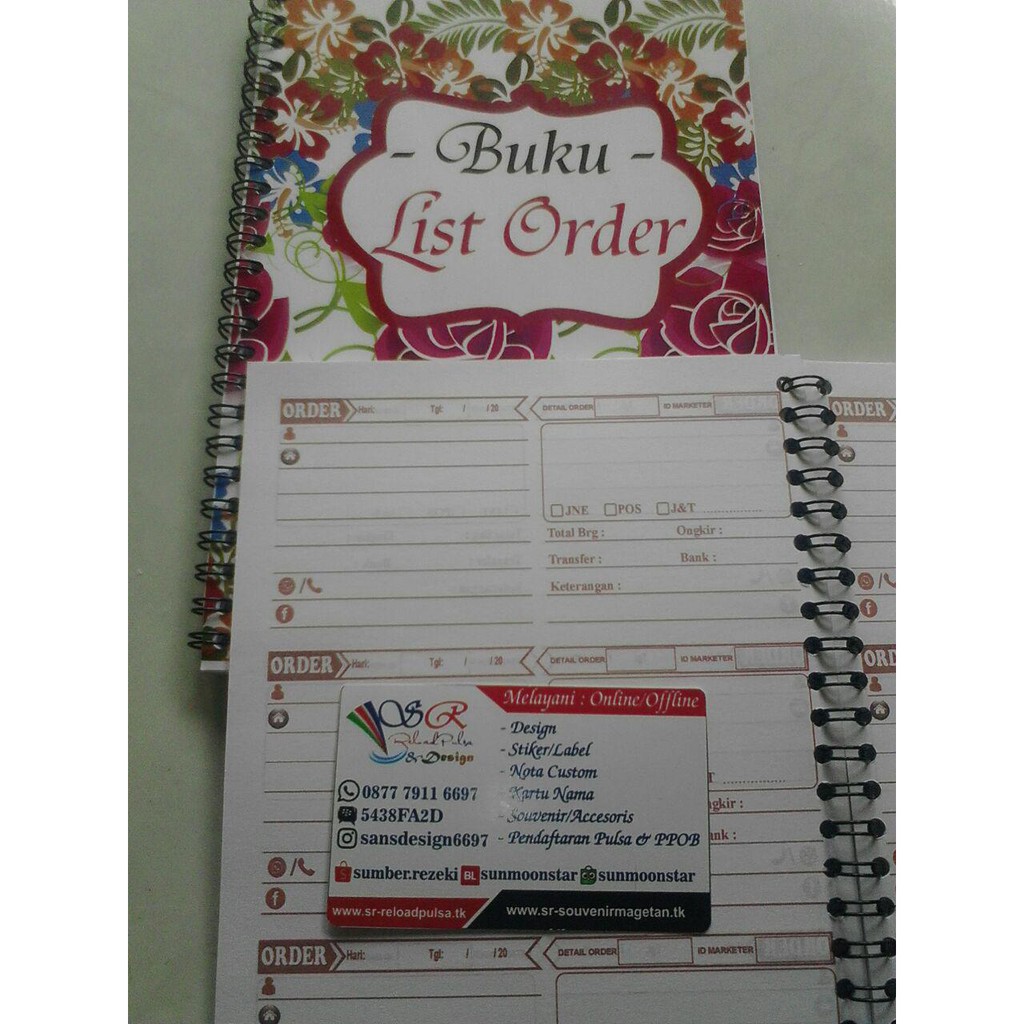 - Buku -
List Order
ORDER Hari: Tgl: / / 20 DETAIL ORDER ID MARKETER
ORDER
JNE POS J&T ....................
Total Brg : Ongkir :
Transfer : Bank :
Keterangan :
ORDER Hari: Tgl: / / 20 DETAIL ORDER ID MARKETER
ORD
Melayani : Online/Offline
SR
ReloadPulsa
& Design
- Design
- Stiker/Label
- Nota Custom
- Kartu Nama
- Souvenir/Accesoris
- Pendaftaran Pulsa & PPOB
0877 7911 6697
5438FA2D
sansdesign6697
sumber.rezeki BL sunmoonstar sunmoonstar
www.sr-reloadpulsa.tk www.sr-souvenirmagetan.tk
T ....................
ngkir :
ank :
ORDER Hari: Tgl: / / 20 DETAIL ORDER ID MARKETER